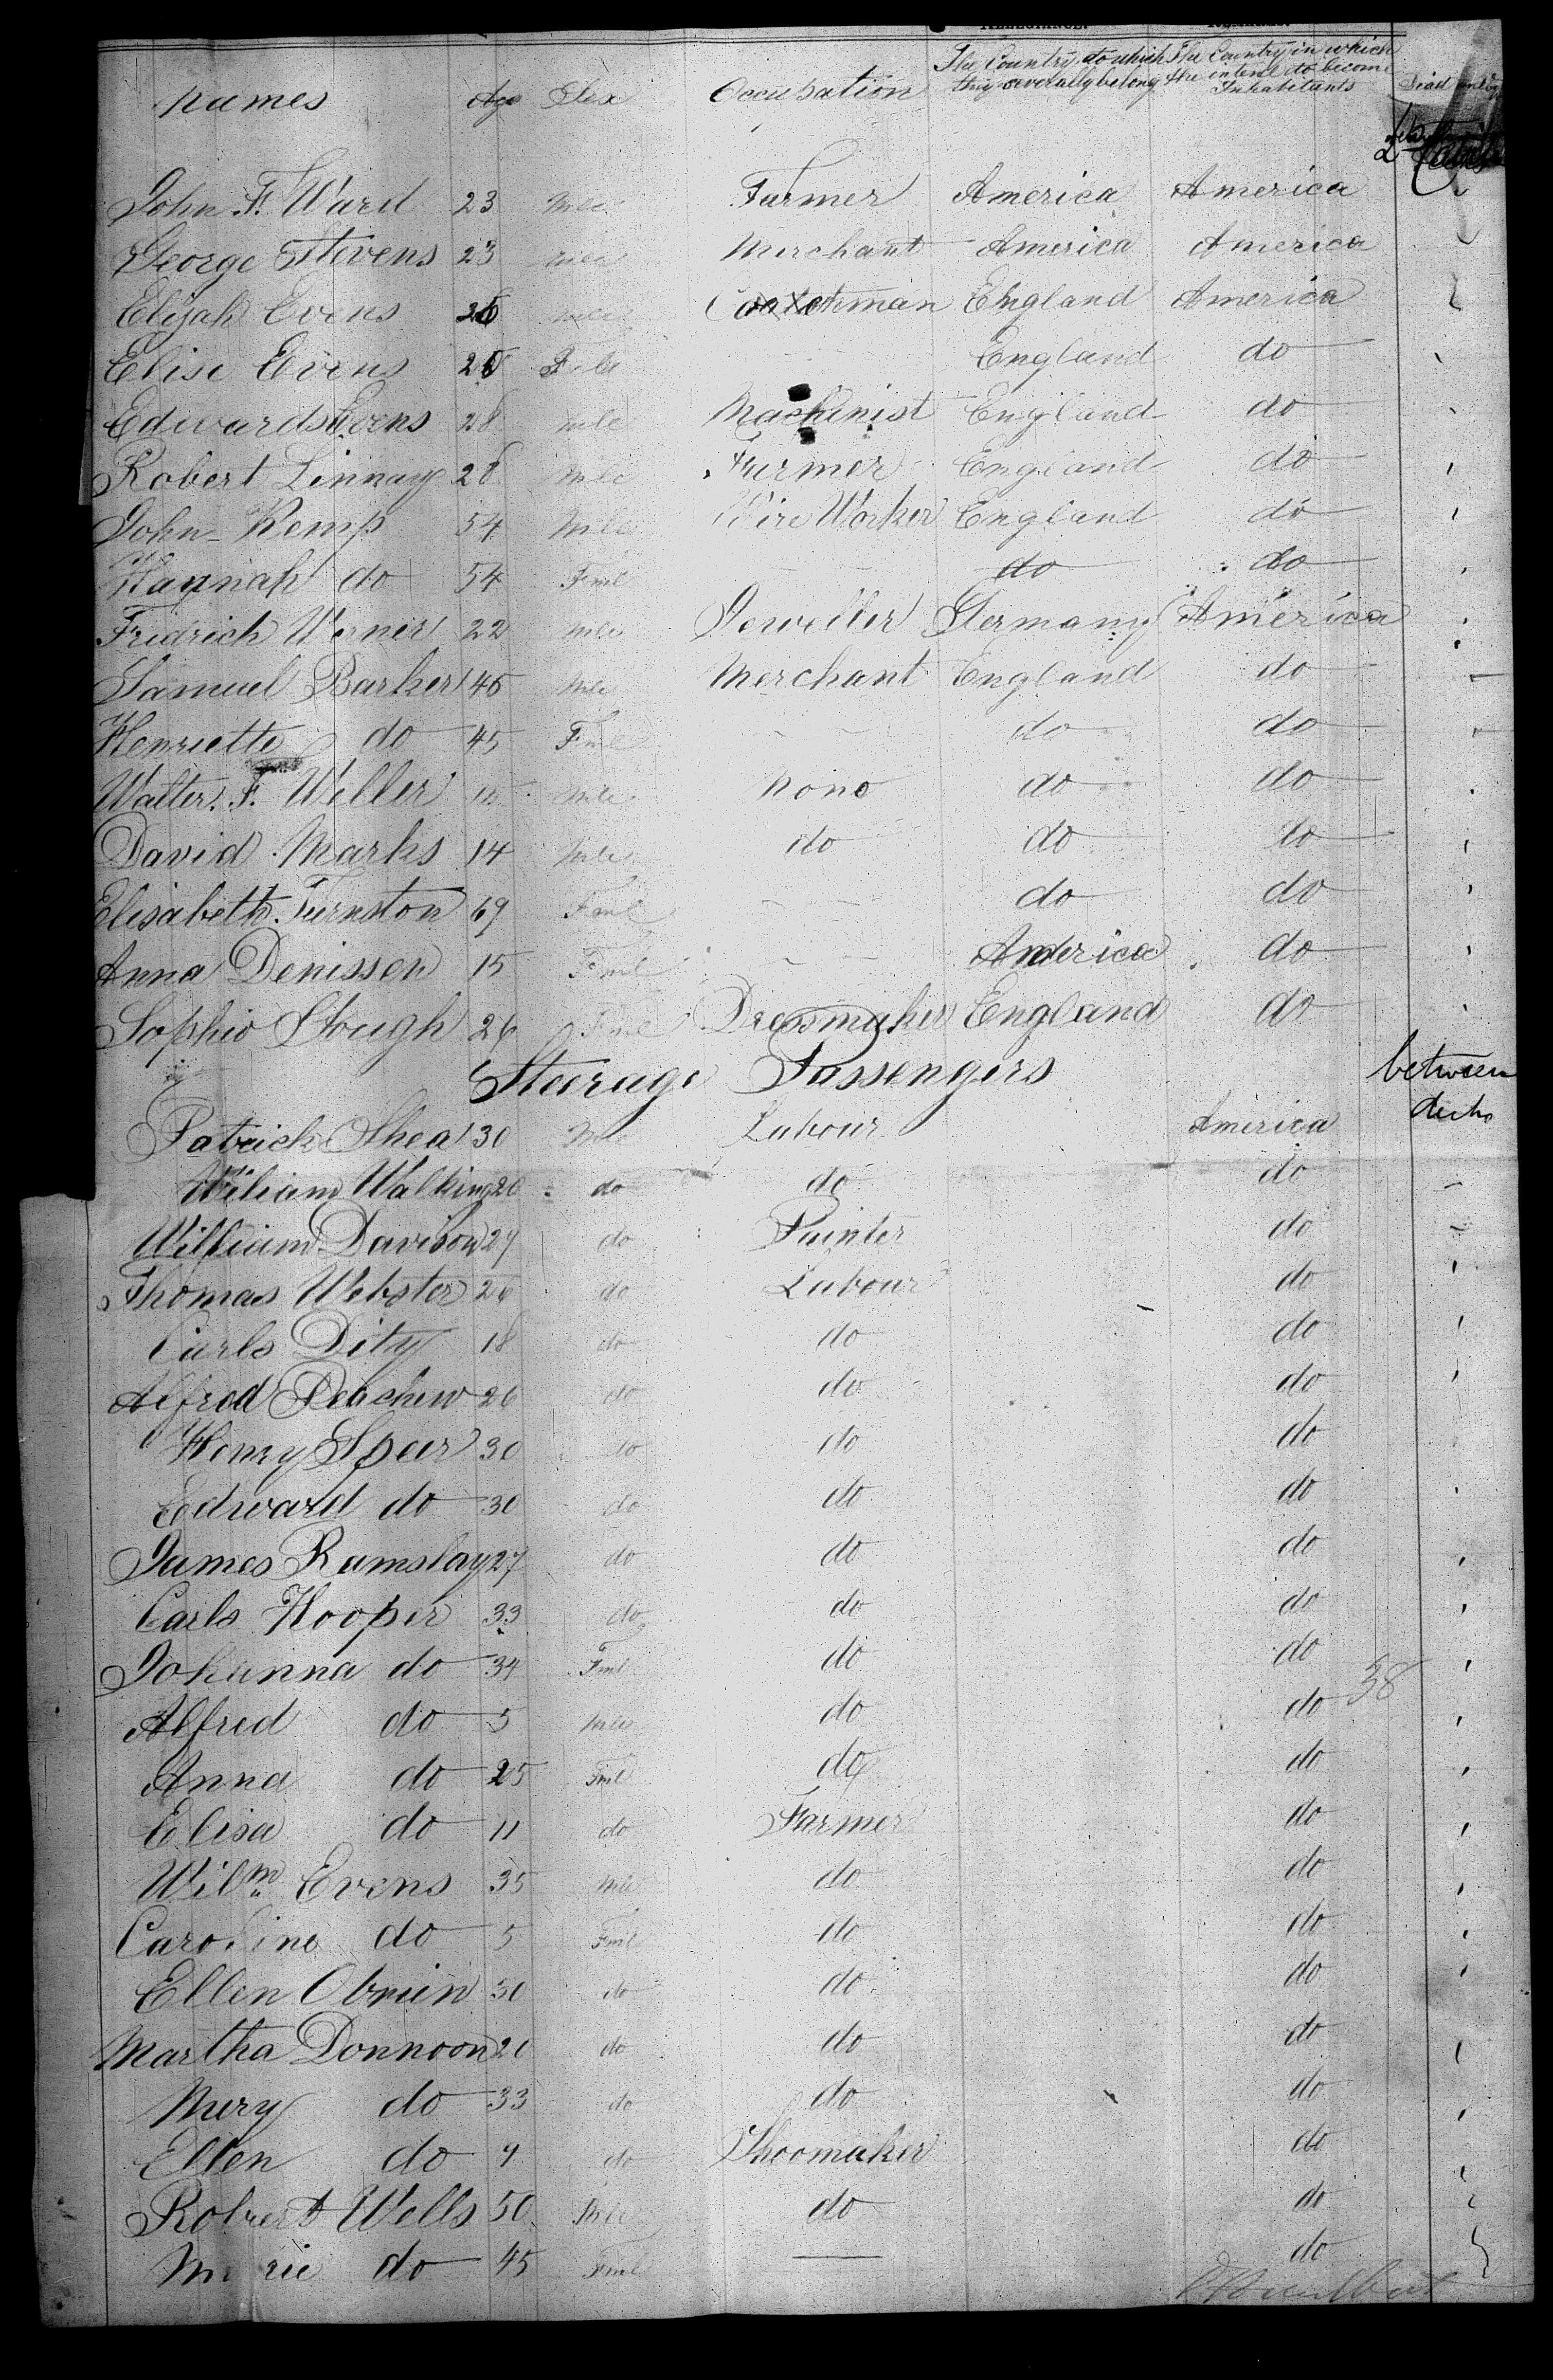 Names Age Sex Occupation The Country to which they severally belong The Country in which the intend to become Inhabitants Died on
2
John F. Ward 23 Mle Farmer America America
George Stevens 23 Mle Merchant America America
Elijah Evens 26 Mle Coatchman England America
Elise Evens 26 F England do
Edwards Evens 28 Mle Machinist England do
Robert Linnay 28 Mle Farmer England do
John Kemp 54 Mle Wire Worker England do
Hannah do 54 Fml do do
Fridrich Werner 22 Mle Jeweller Germany America
Samuel Barker 45 Mle Merchant England do
Henriette do 45 Fml do do
Walter. F. Weller Mle None do do
David Marks 14 Mle do do do
Elisabeth Turnston 69 Fml do do
Anna Denissen 15 Fml America do
Sophie Slough 26 Fml Dressmaker England do
Steerage Passengers between decks
Patrick Shea 30 Mle Labour America
William Walking 20 do do do
William Davison 29 do Painter do
Thomas Webster 26 do Labour do
Carls Dity 18 do do do
Alfred Peachew 26 do do do
Henry Speer 30 do do do
Edward do 30 do do do
James Ramslay 27 do do do
Carls Hooper 33 do do do
Johanna do 34 Fml do do 38
Alfred do 5 Mle do do
Anna do 25 Fml do do
Elisa do 11 do Farmer do
Wilm Evens 35 Mle do do
Caroline do 5 Fml do do
Ellen Obrien 30 do do do
Martha Donnoon 20 do do do
Mery do 33 do do do
Ellen do 9 do Shoomaker do
Robert Wells 50 Mle do do
Marie do 45 Fml do